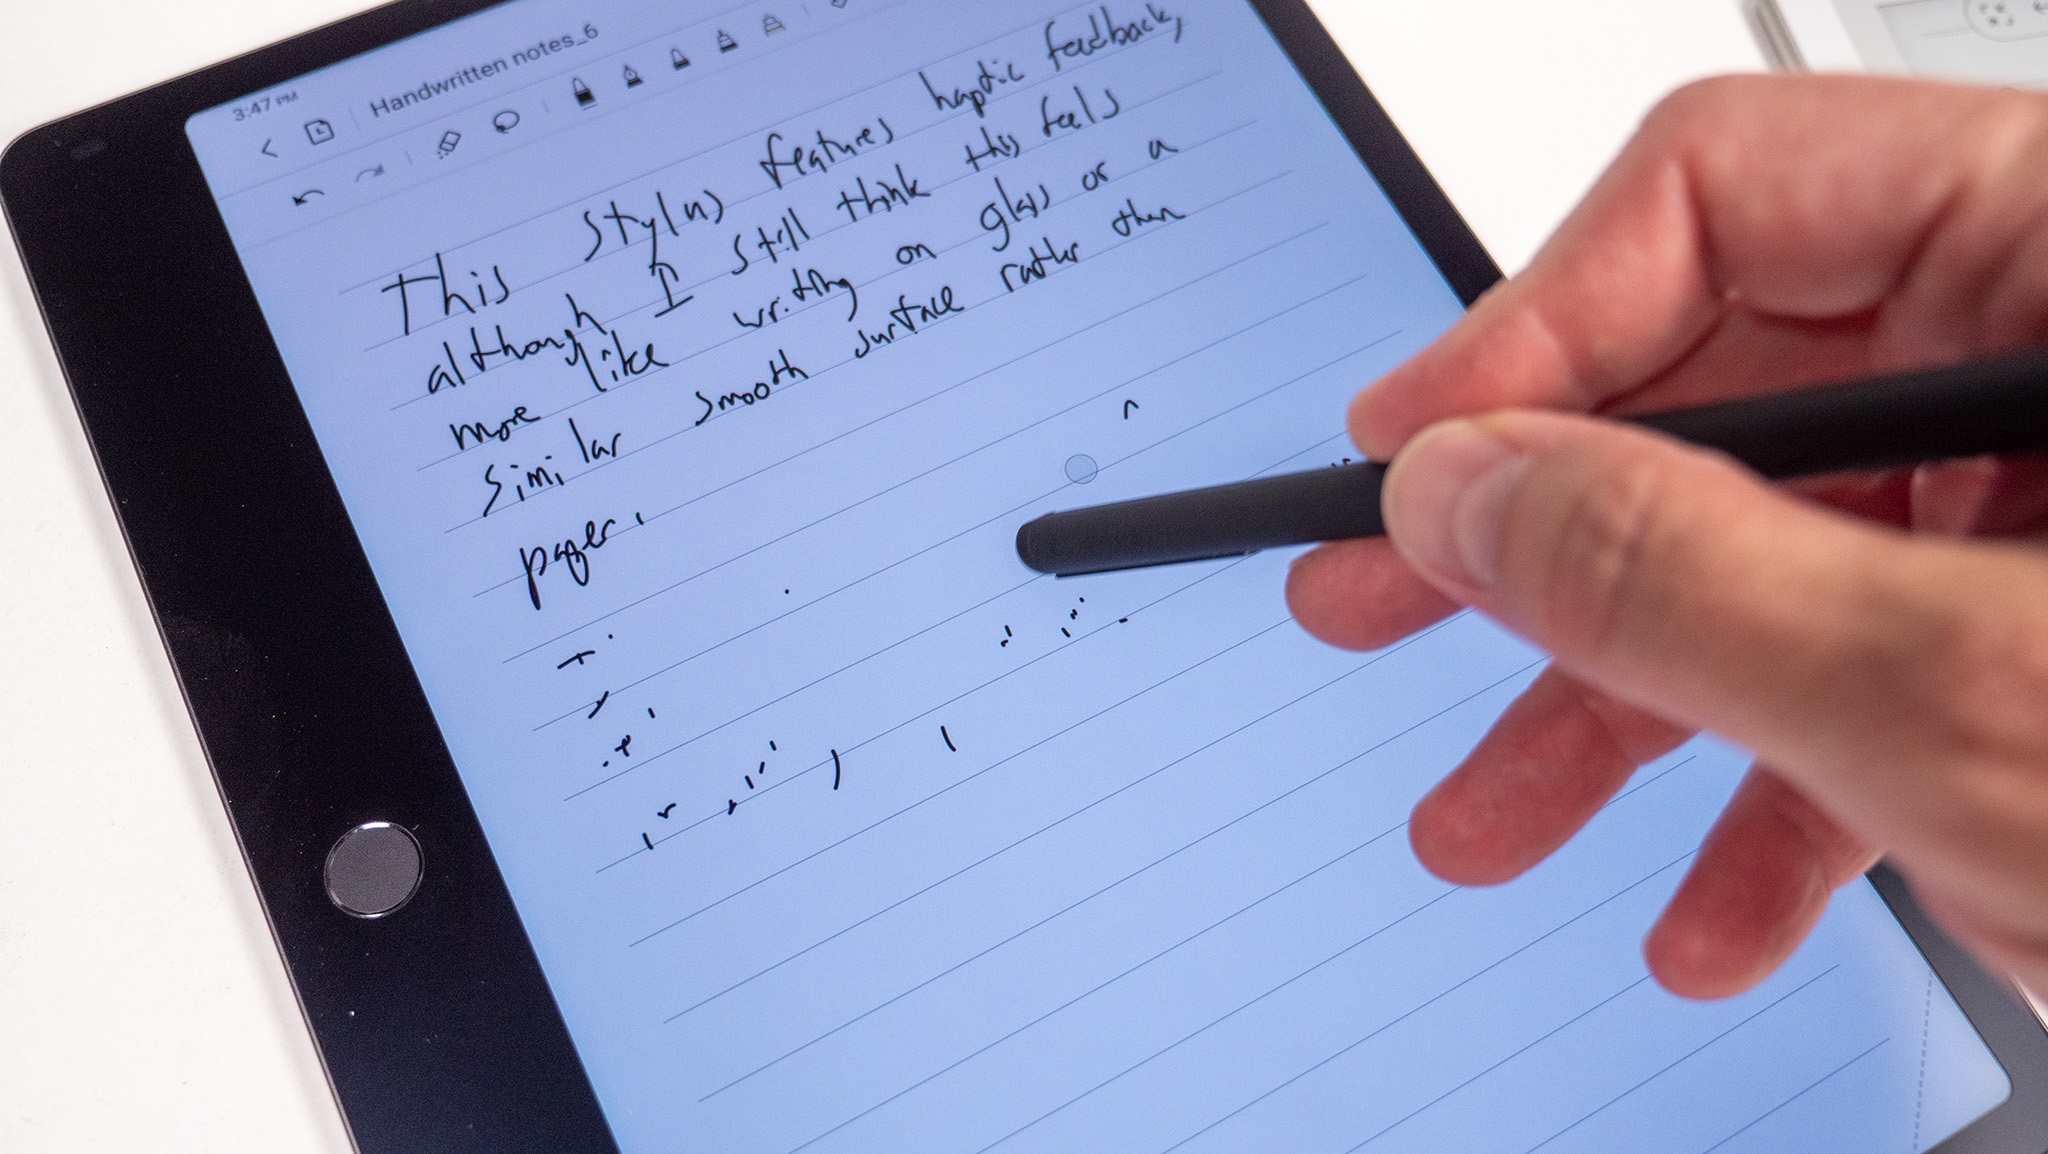 3:47 PM
Handwritten notes_6
This stylus features haptic feedback,
although I still think this feels
more like writing on glass or a
similar smooth surface rather than
paper.